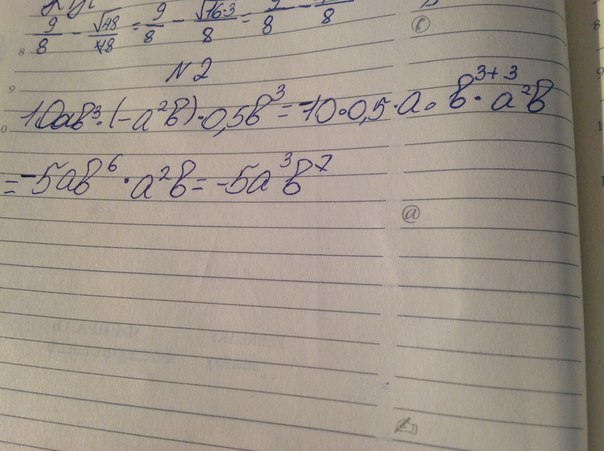 9/8 - √48/48 = 9/8 - √16·3/8 = 9/8 -
8
N2
9
10ab³·(-a²b)·0,5b³ = -10·0,5·a·b³⁺³·a²b
= -5ab⁶·a²b = -5a³b⁷